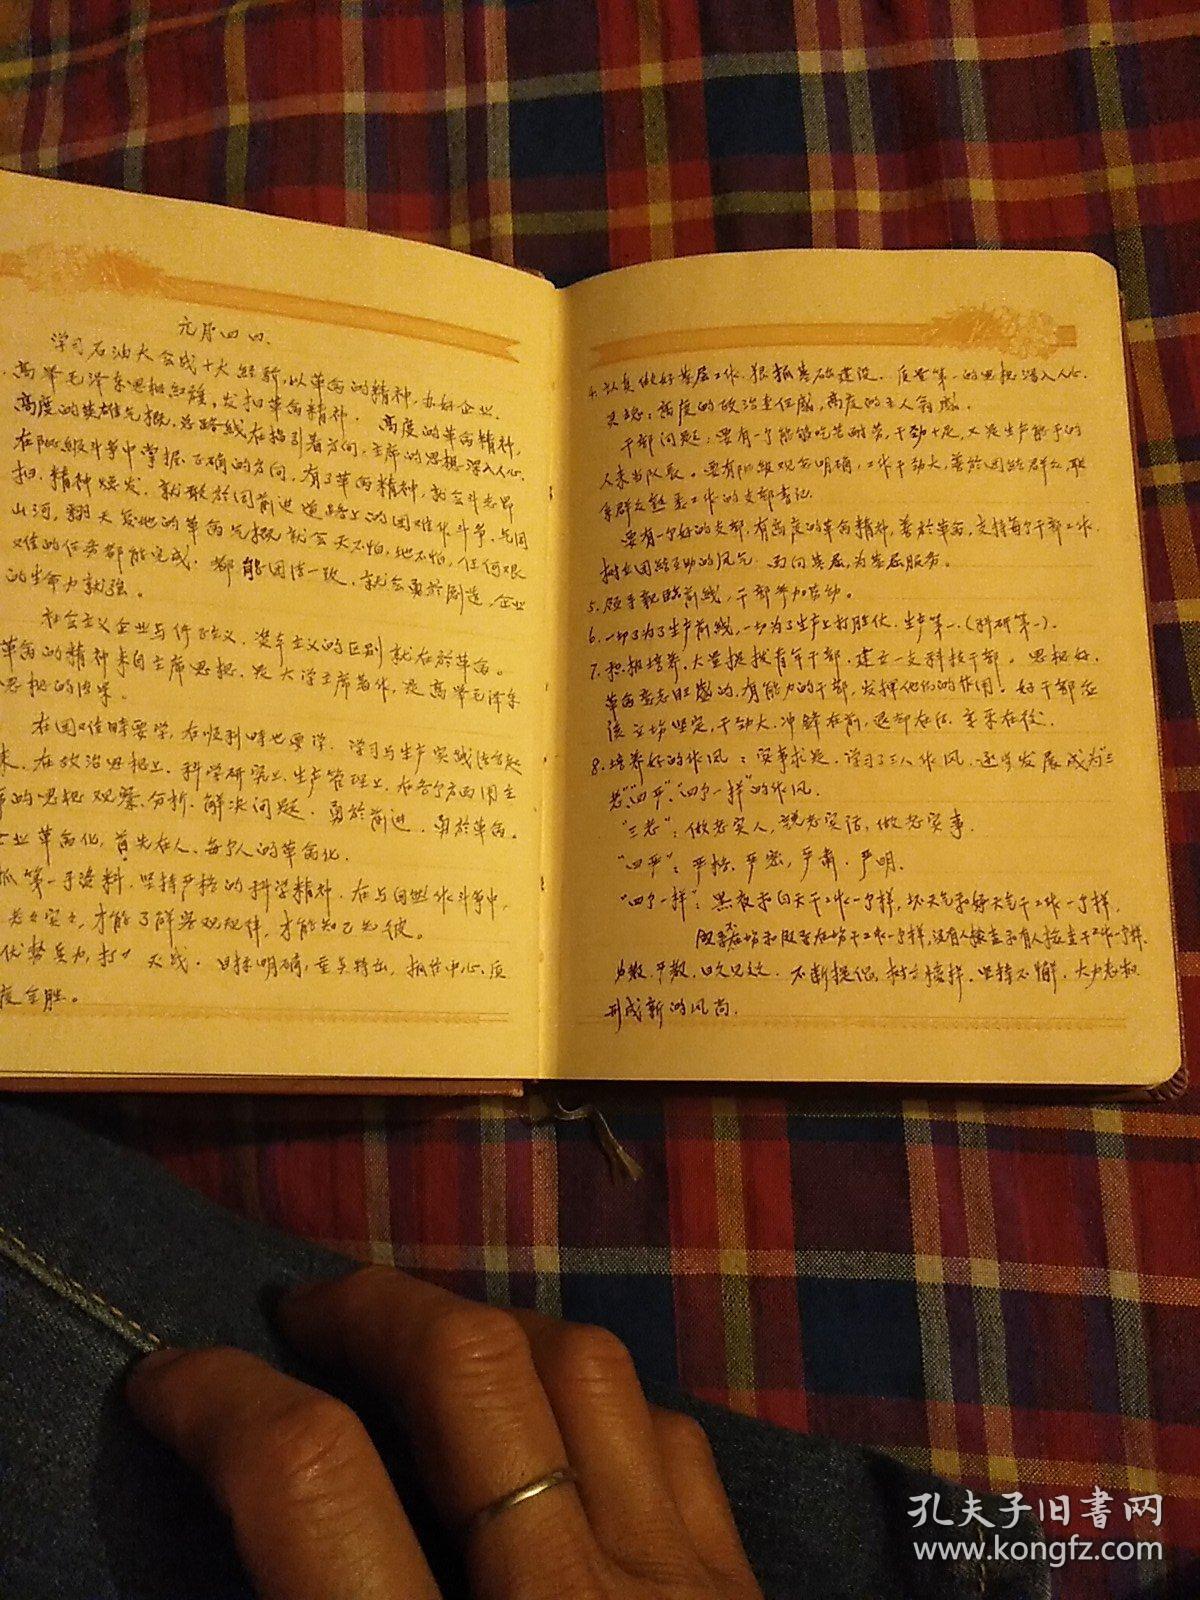 元月四日.
学习石油大会战十大经验,以革命的精神,办好企业.
高举毛泽东思想红旗,发扣革命精神. 高度的革命精神,
高度的英雄气概,总路线在指引着方向,主席的思想深入人心.
在阶级斗争中掌握正确的方向,有了革命精神,就会斗志昂
扣.精神焕发.就敢於向前进道路上的困难作斗争,气同
山河,翻天复地的革命气概就会天不怕,地不怕,任何艰
难的任务都能完成.都能团结一致.就会勇於创造,企业
的生命力就强。
社会主义企业与修正主义、资本主义的区别就在於革命。
革命的精神来自主席思想.是大学主席著作,是高举毛泽东
思想的结果。
在困难时要学,在顺利时也要学.学习与生产实践结合起
来.在政治思想上.科学研究上.生产管理上.在各个方面用主
席的思想观察.分析.解决问题.勇於前进.勇於革命。
业革命化,首先在人.每个人的革命化.
抓第一手资料.坚持严格的科学精神.在与自然作斗争中,
老老实实,才能了解客观规律,才能知己知彼。
优势兵力,打 灭战.目标明确,重点突出,抓住中心.反
度全胜。
4.认真做好基层工作.狠抓基础建设.质量第一的思想深入人心.
灵魂:高度的政治责任感,高度的主人翁感.
干部问题:要有一个能够吃苦耐劳,干劲十足,又是生产能手的
人来当队长。要有阶级观念明确,工作干劲大,善於团结群众.联
系群众熟悉工作的支部书记.
要有一个好的支部,有高度的革命精神,善於革命,支持每个干部工作.
树立团结互助的风气.面向基层,为基层服务。
5.领导亲临前线,干部参加劳动。
6.一切为了生产前线,一切为了生产上打胜仗.生产第一.(科研第一).
7.积极培养.大量提拔青年干部.建立一支科技干部。思想好.
革命意志旺盛的,有能力的干部,发挥他们的作用。好干部应
该立场坚定,干劲大.冲锋在前,退却在后.享乐在后.
8.培养好的作风:实事求是.学习了三八作风.逐步发展成为"三
老""四严""四个一样"的作风.
"三老":做老实人,说老实话,做老实事.
"四严":严格.严密,严肃.严明.
"四个一样":黑夜和白天干工作一个样,坏天气和好天气干工作一个样,
领导不在场和领导在场干工作一个样,没有人检查和有人检查干工作一个样.
不断提倡.树立榜样.坚持不懈.大力表扬
形成新的风尚.
孔夫子旧书网
www.kongfz.com